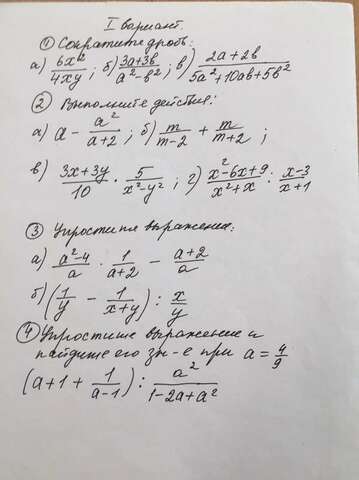 I вариант
① Сократите дробь:
а) 6x²/4xy ; б) 3a+3b/a²-b² ; в) 2a+2b/5a²+10ab+5b²
② Выполните действия:
а) a - a²/a+2 ; б) m/m-2 + m/m+2 ;
в) 3x+3y/10 · 5/x²-y² ; г) x²-6x+9/x²+x : x-3/x+1
③ Упростите выражения:
а) a²-4/a · 1/a+2 - a+2/a
б) (1/y - 1/x+y) : x/y
④ Упростите выражение и
найдите его зн-е при a = 4/9
(a+1 + 1/a-1) : a²/1-2a+a²